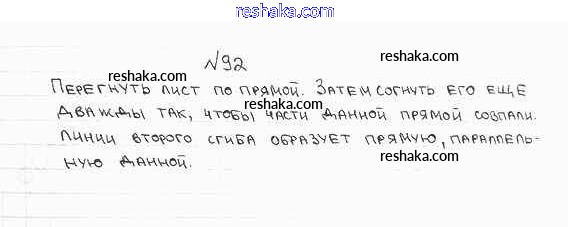 reshaka.com
№92
reshaka.com
reshaka.com
Перегнуть лист по прямой. Затем согнуть его еще
reshaka.com
дважды так, чтобы части данной прямой совпали.
reshaka.com
Линии второго сгиба образует прямую, параллель-
ную данной.
reshaka.com
reshaka.com